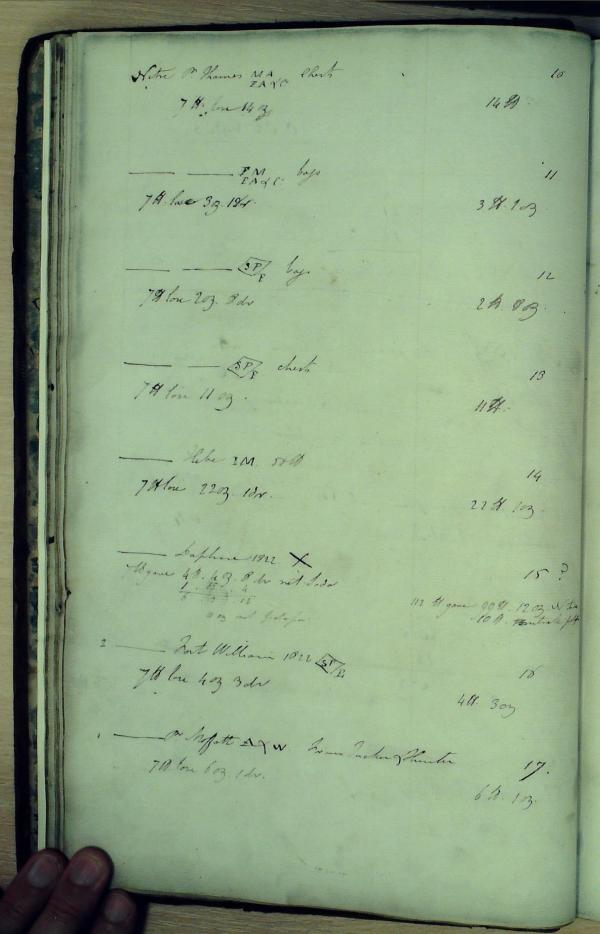 Nitre pr Thames MA Chests 10
EA&C
7 lb. lose 14 oz. 14 lb
PM bags 11
EA&C
7 lb. lose 3 oz 1 dr. 3 lb. 1 oz
SP bags 12
P
7 lb lose 2 oz. 8 dr 2 lb. 8 oz
SP chests 13
P
7 lb lose 11 oz. 11 lb.
Hebe IM 14
7 lb lose 22 oz. 1 dr. 22 lb. 1 oz.
Daphne 1822 X 15 ?
gave 4 lb. 4 oz. 8 dr nit Soda
112 lb gave 12 oz
10 lb.
2 Fort William 1822 SP 16
7 lb lose 4 oz 3 dr 4 lb. 3 oz
1 pr Moffatt A&W From Tucker & Hunter 17.
7 lb lose 6 oz. 1 dr. 6 lb. 1 oz.